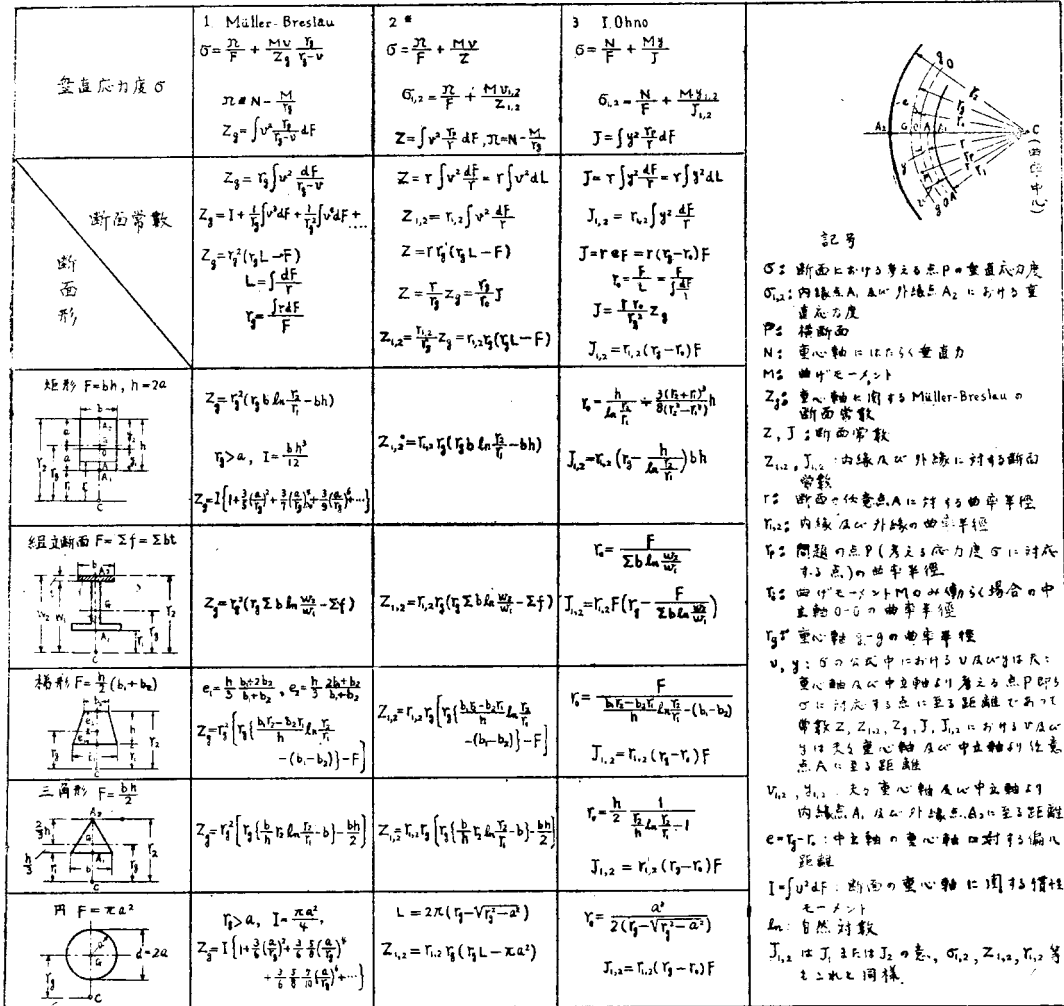 1 Müller-Breslau
σ = 𝔫/F + Mv/Z_g · r_g/(r_g-v)
𝔫 = N - M/r_g
Z_g = ∫v² r_g/(r_g-v) dF
2 *
σ = 𝔫/F + Mv/Z
σ₁,₂ = 𝔫/F + Mv₁,₂/Z₁,₂
Z = ∫v² r_P/r dF, 𝔫 = N - M/r_g
3 I. Ohno
σ = N/F + My/J
σ₁,₂ = N/F + M·y₁,₂/J₁,₂
J = ∫y² r_P/r dF
垂直応力度 σ
断面常数
断面形
Z_g = r_g∫v² dF/(r_g-v)
Z_g = I + 1/r_g ∫v³dF + 1/r_g² ∫v⁴dF + ....
Z_g = r_g²(r_g L - F)
L = ∫dF/r
r_g = ∫rdF/F
Z = r∫v² dF/r = r∫v²dL
Z₁,₂ = r₁,₂∫v² dF/r
Z = r r_g(r_g L - F)
Z = r/r_g Z_g = r_g/r₀ J
Z₁,₂ = r₁,₂/r_g Z_g = r₁,₂r_g(r_g L - F)
J = r∫y² dF/r = r∫y²dL
J₁,₂ = r₁,₂∫y² dF/r
J = r e F = r(r_g - r₀)F
r₀ = F/L = F/∫dF/r
J = r r₀/r_g² Z_g
J₁,₂ = r₁,₂(r_g - r₀)F
矩形 F = bh, h = 2a
Z_g = r_g²(r_g b ln r₂/r₁ - bh)
r_g > a, I = bh³/12
Z_g = I{1 + 3/5(a/r_g)² + 3/7(a/r_g)⁴ + 3/9(a/r_g)⁶ + ···}
Z₁,₂ = r₁,₂ r_g(r_g b ln r₂/r₁ - bh)
r₀ = h/ln r₂/r₁ ÷ 3(r₂+r₁)³/8(r₂³-r₁³) h
J₁,₂ = r₁,₂(r_g - h/ln r₂/r₁)bh
組立断面 F = Σf = Σbt
Z_g = r_g²(r_g Σb ln w₂/w₁ - Σf)
Z₁,₂ = r₁,₂r_g(r_g Σb ln w₂/w₁ - Σf)
r₀ = F/Σb ln w₂/w₁
J₁,₂ = r₁,₂F(r_g - F/Σb ln w₂/w₁)
梯形 F = h/2(b₁+b₂)
e₁ = h/3 · (b₁+2b₂)/(b₁+b₂), e₂ = h/3 · (2b₁+b₂)/(b₁+b₂)
Z_g = r_g²[r_g{(b₁r₂-b₂r₁)/h ln r₂/r₁
-(b₁-b₂)}-F]
Z₁,₂ = r₁,₂r_g[r_g{(b₁r₂-b₂r₁)/h ln r₂/r₁
-(b₁-b₂)}-F]
r₀ = F/((b₁r₂-b₂r₁)/h ln r₂/r₁ - (b₁-b₂))
J₁,₂ = r₁,₂(r_g - r₀)F
三角形 F = bh/2
Z_g = r_g²[r_g{b/h r₂ ln r₂/r₁ - b} - bh/2]
Z₁,₂ = r₁,₂r_g[r_g{b/h r₂ ln r₂/r₁ - b} - bh/2]
r₀ = h/2 · 1/(r₂/h ln r₂/r₁ - 1)
J₁,₂ = r₁,₂(r_g - r₀)F
円 F = πa²
d=2a
r_g > a, I = πa⁴/4,
Z_g = I{1 + 3/6(a/r_g)² + 3/6 · 5/8(a/r_g)⁴
+ 3/6 · 5/8 · 7/10(a/r_g)⁶ + ···}
L = 2π(r_g - √(r_g²-a²))
Z₁,₂ = r₁,₂ r_g(r_g L - πa²)
r₀ = a²/2(r_g - √(r_g²-a²))
J₁,₂ = r₁,₂(r_g - r₀)F
C(曲率中心)
記号
σ: 断面における考える点Pの垂直応力度
σ₁,₂: 内縁点A₁及び外縁点A₂における垂
直応力度
F: 横断面
N: 重心軸にはたらく垂直力
M: 曲げモーメント
Z_g: 重心軸に関するMüller-Breslauの
断面常数
Z, J: 断面常数
Z₁,₂, J₁,₂: 内縁及び外縁に対する断面
常数
r: 断面の任意点Aに対する曲率半径
r₁,₂: 内縁及び外縁の曲率半径
r_P: 問題の点P(考える応力度σに対応
する点)の曲率半径
r₀: 曲げモーメントMのみ働らく場合の中
立軸0-0の曲率半径
r_g: 重心軸g-gの曲率半径
v, y: σの公式中におけるv及びyは夫々
重心軸及び中立軸より考える点P即ち
σに対応する点に至る距離であって
常数Z, Z₁,₂, Z_g, J, J₁,₂におけるv及び
yは夫々重心軸及び中立軸より任意
点Aに至る距離
v₁,₂, y₁,₂: 夫々重心軸及び中立軸より
内縁点A₁及び外縁点A₂に至る距離
e = r_g - r₀: 中立軸の重心軸に対する偏心
距離
I = ∫v²dF: 断面の重心軸に関する慣性
モーメント
ln: 自然対数
J₁,₂はJ₁またはJ₂の意、σ₁,₂, Z₁,₂, r₁,₂等
もこれと同様.